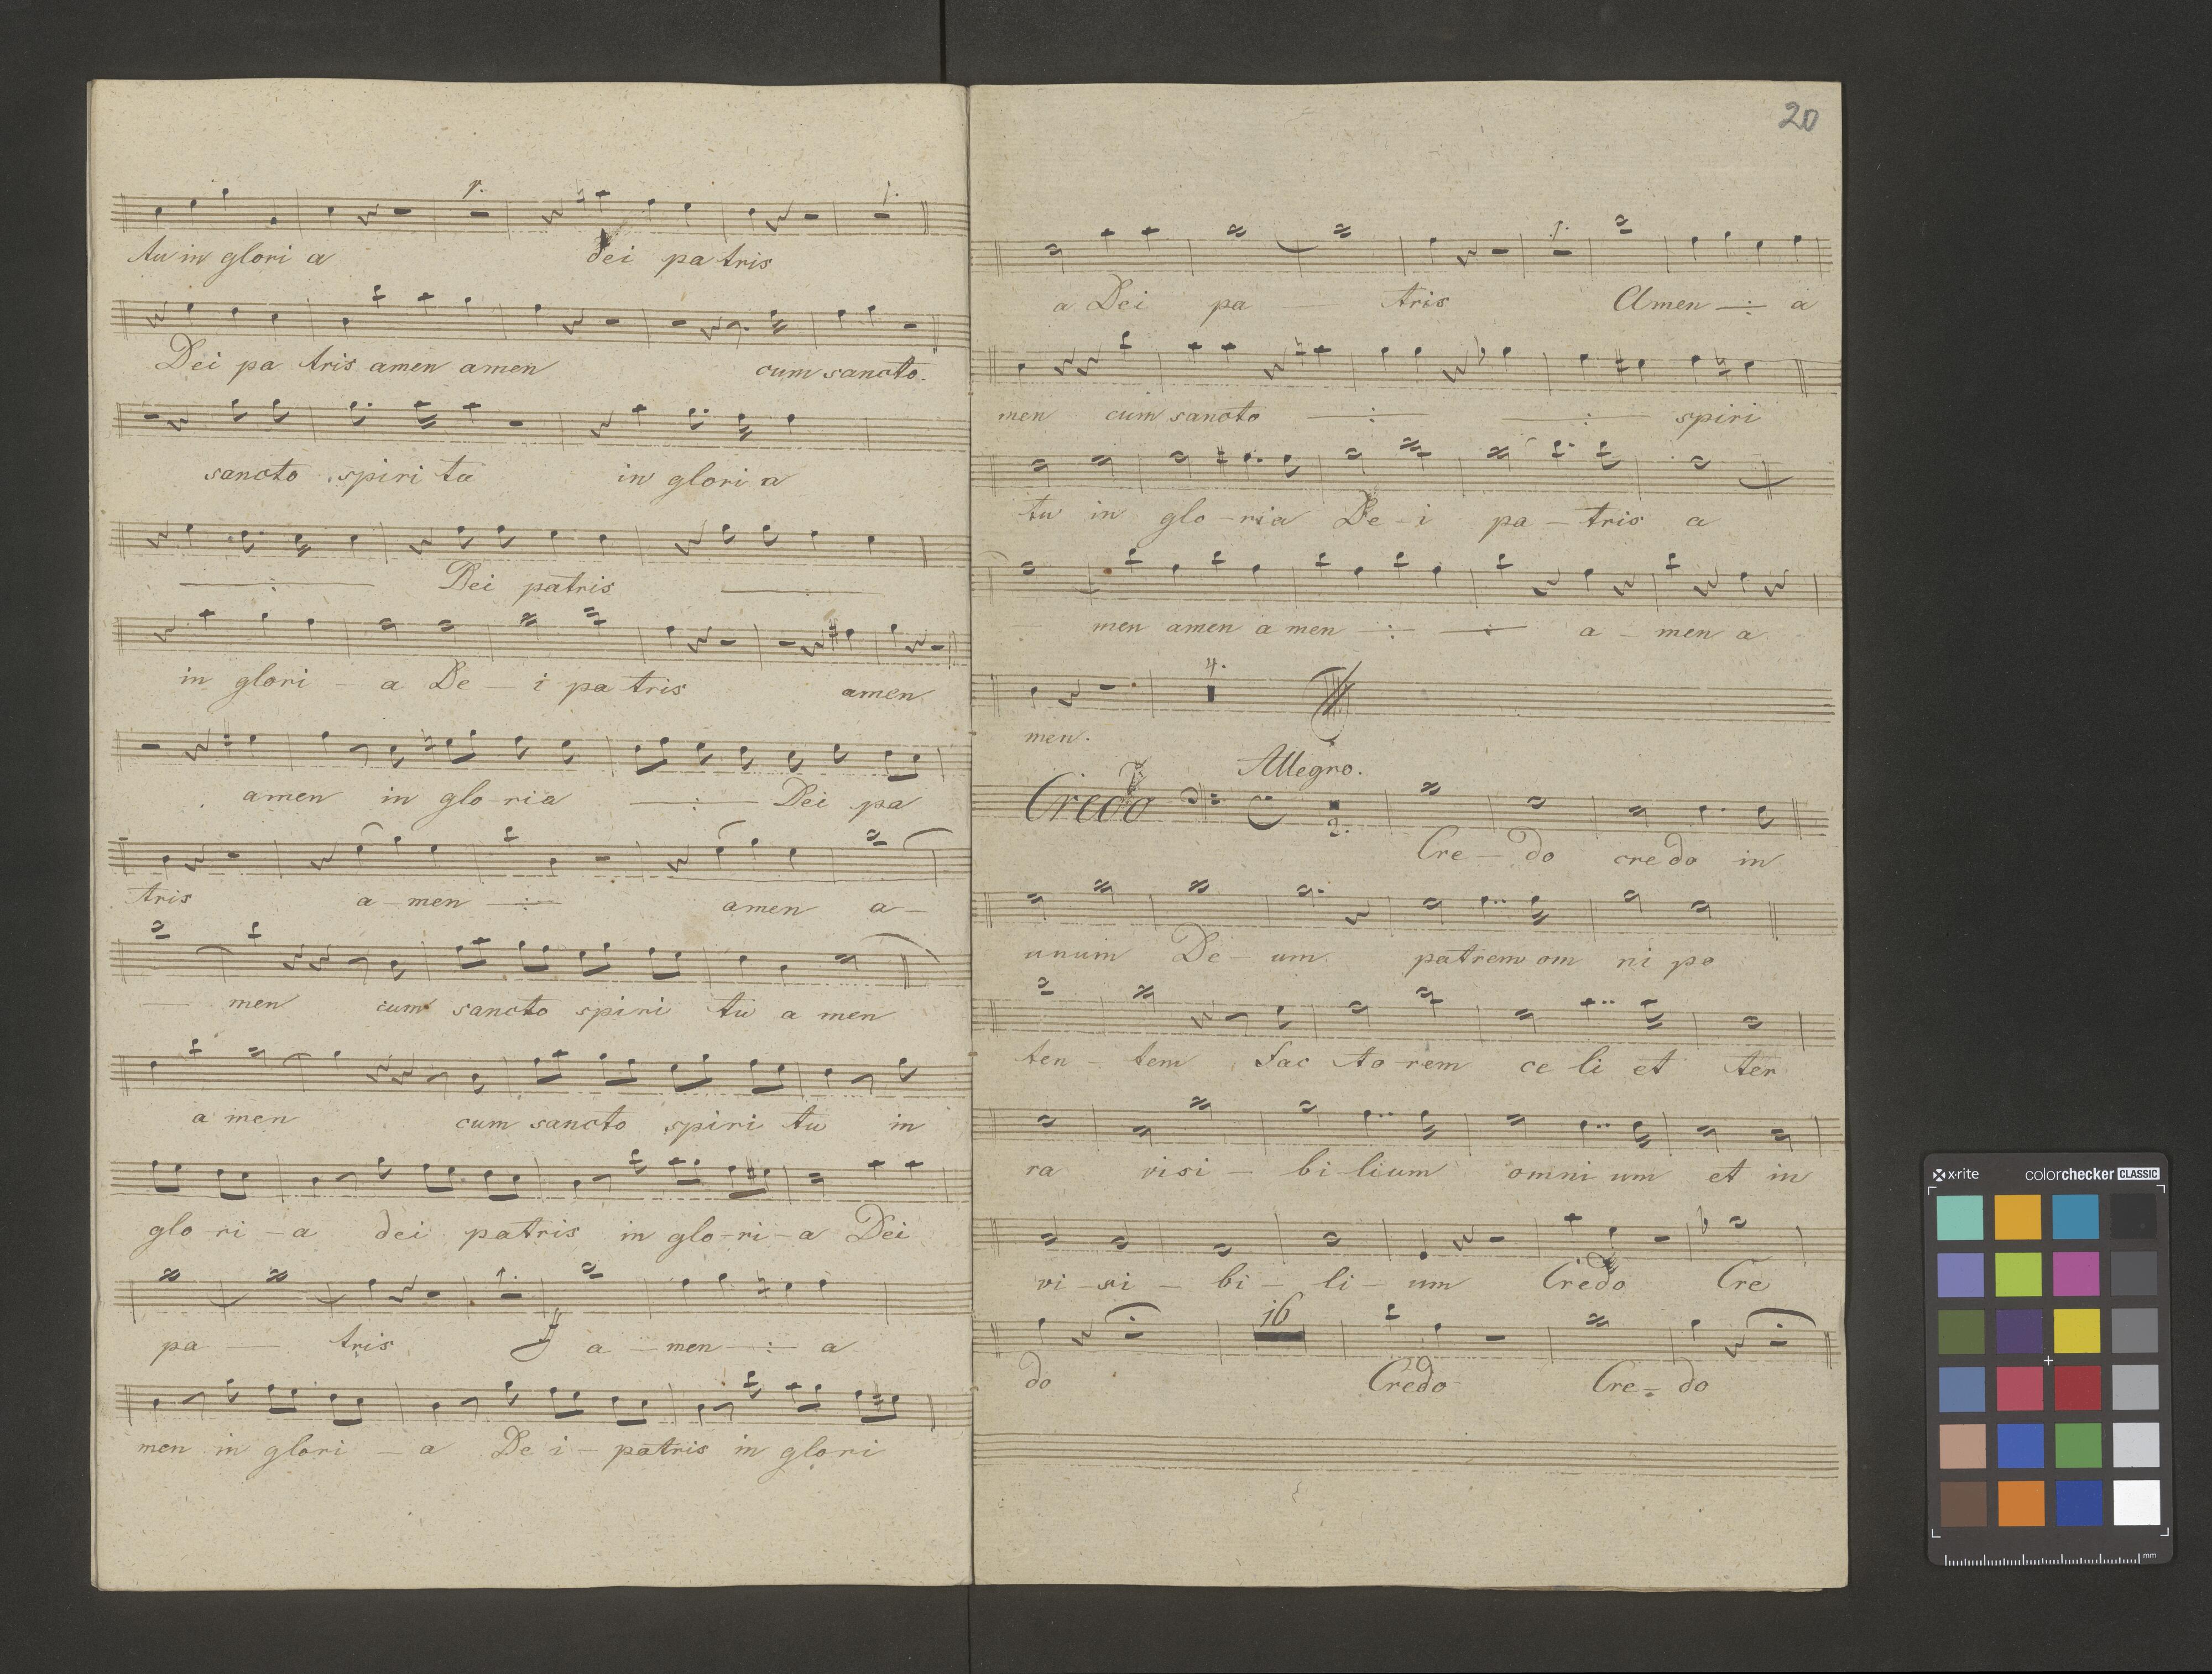 1.
1.
tu in glori a dei pa tris
Dei pa tris amen amen cum sancto.
sancto spiri tu in glori a
—:— Dei patris —:—
in glori - a De - i pa tris amen
amen in glo-ria —:— Dei pa
tris a-men —:— amen a-
— men cum sancto spiri tu a men
a men cum sancto spiri tu in
glo-ri-a dei patris in glo-ri-a Dei
1.
pa — tris a - men —:— a
men in glori - a De i - patris in glori
20
1.
a Dei pa tris Amen —:— a
men cum sancto —:— —:— spiri
tu in glo-ria De-i pa-tris a
men amen a men —:— —:— a - men a
4.
men.
Allegro.
Credo 2.
Cre - do cre do in
unum De - um. patrem om ni po
ten - tem fac to-rem ce li et ter
ra visi - bi lium omni um et in
vi-si - bi - li - um Credo Cre
16
do Credo Cre - do
x·rite colorchecker CLASSIC
mm